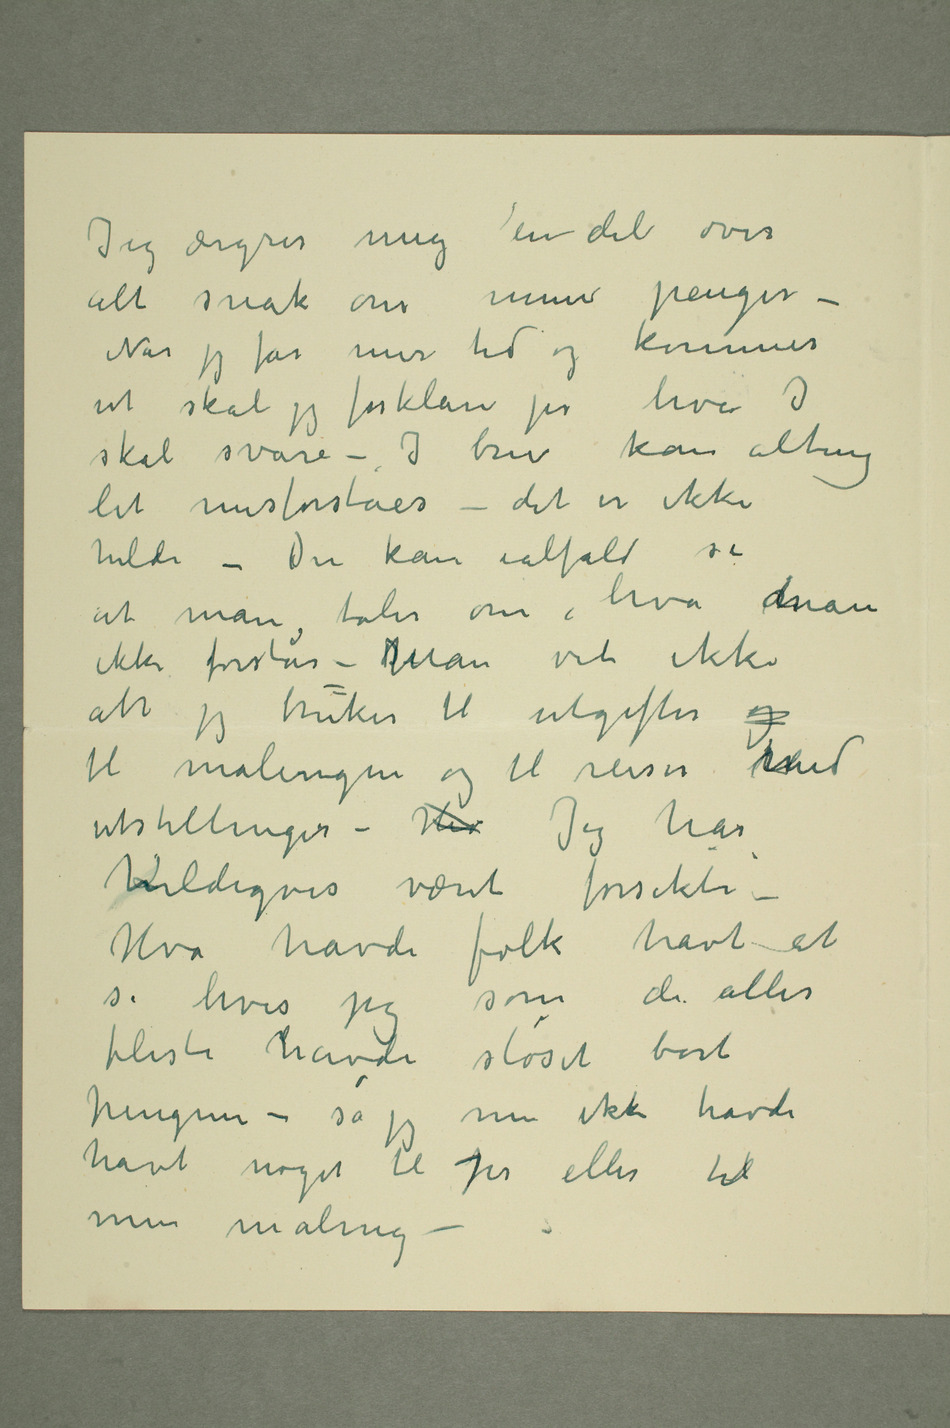 Jeg ærgrer mig en del over
alt snak om mine penger –
Når jeg får mer tid og kommer
ut skal jeg forklare jer hva I
skal svare – I brev kan alting
let misforståes – det er ikke
heldi – Du kan ialfald si
at man taler om hva man
ikke forstår – Man vet ikke
alt jeg bruker til utgifter og
til malingen og til reiser med
utstillinger – Her Jeg har
heldigvis været forsikti –
Hva havde folk havt at
si hvis jeg som de aller
fleste havde sløset bort
pengene – så jeg nu ikke havde
havt noget til Jer eller til
min maling –